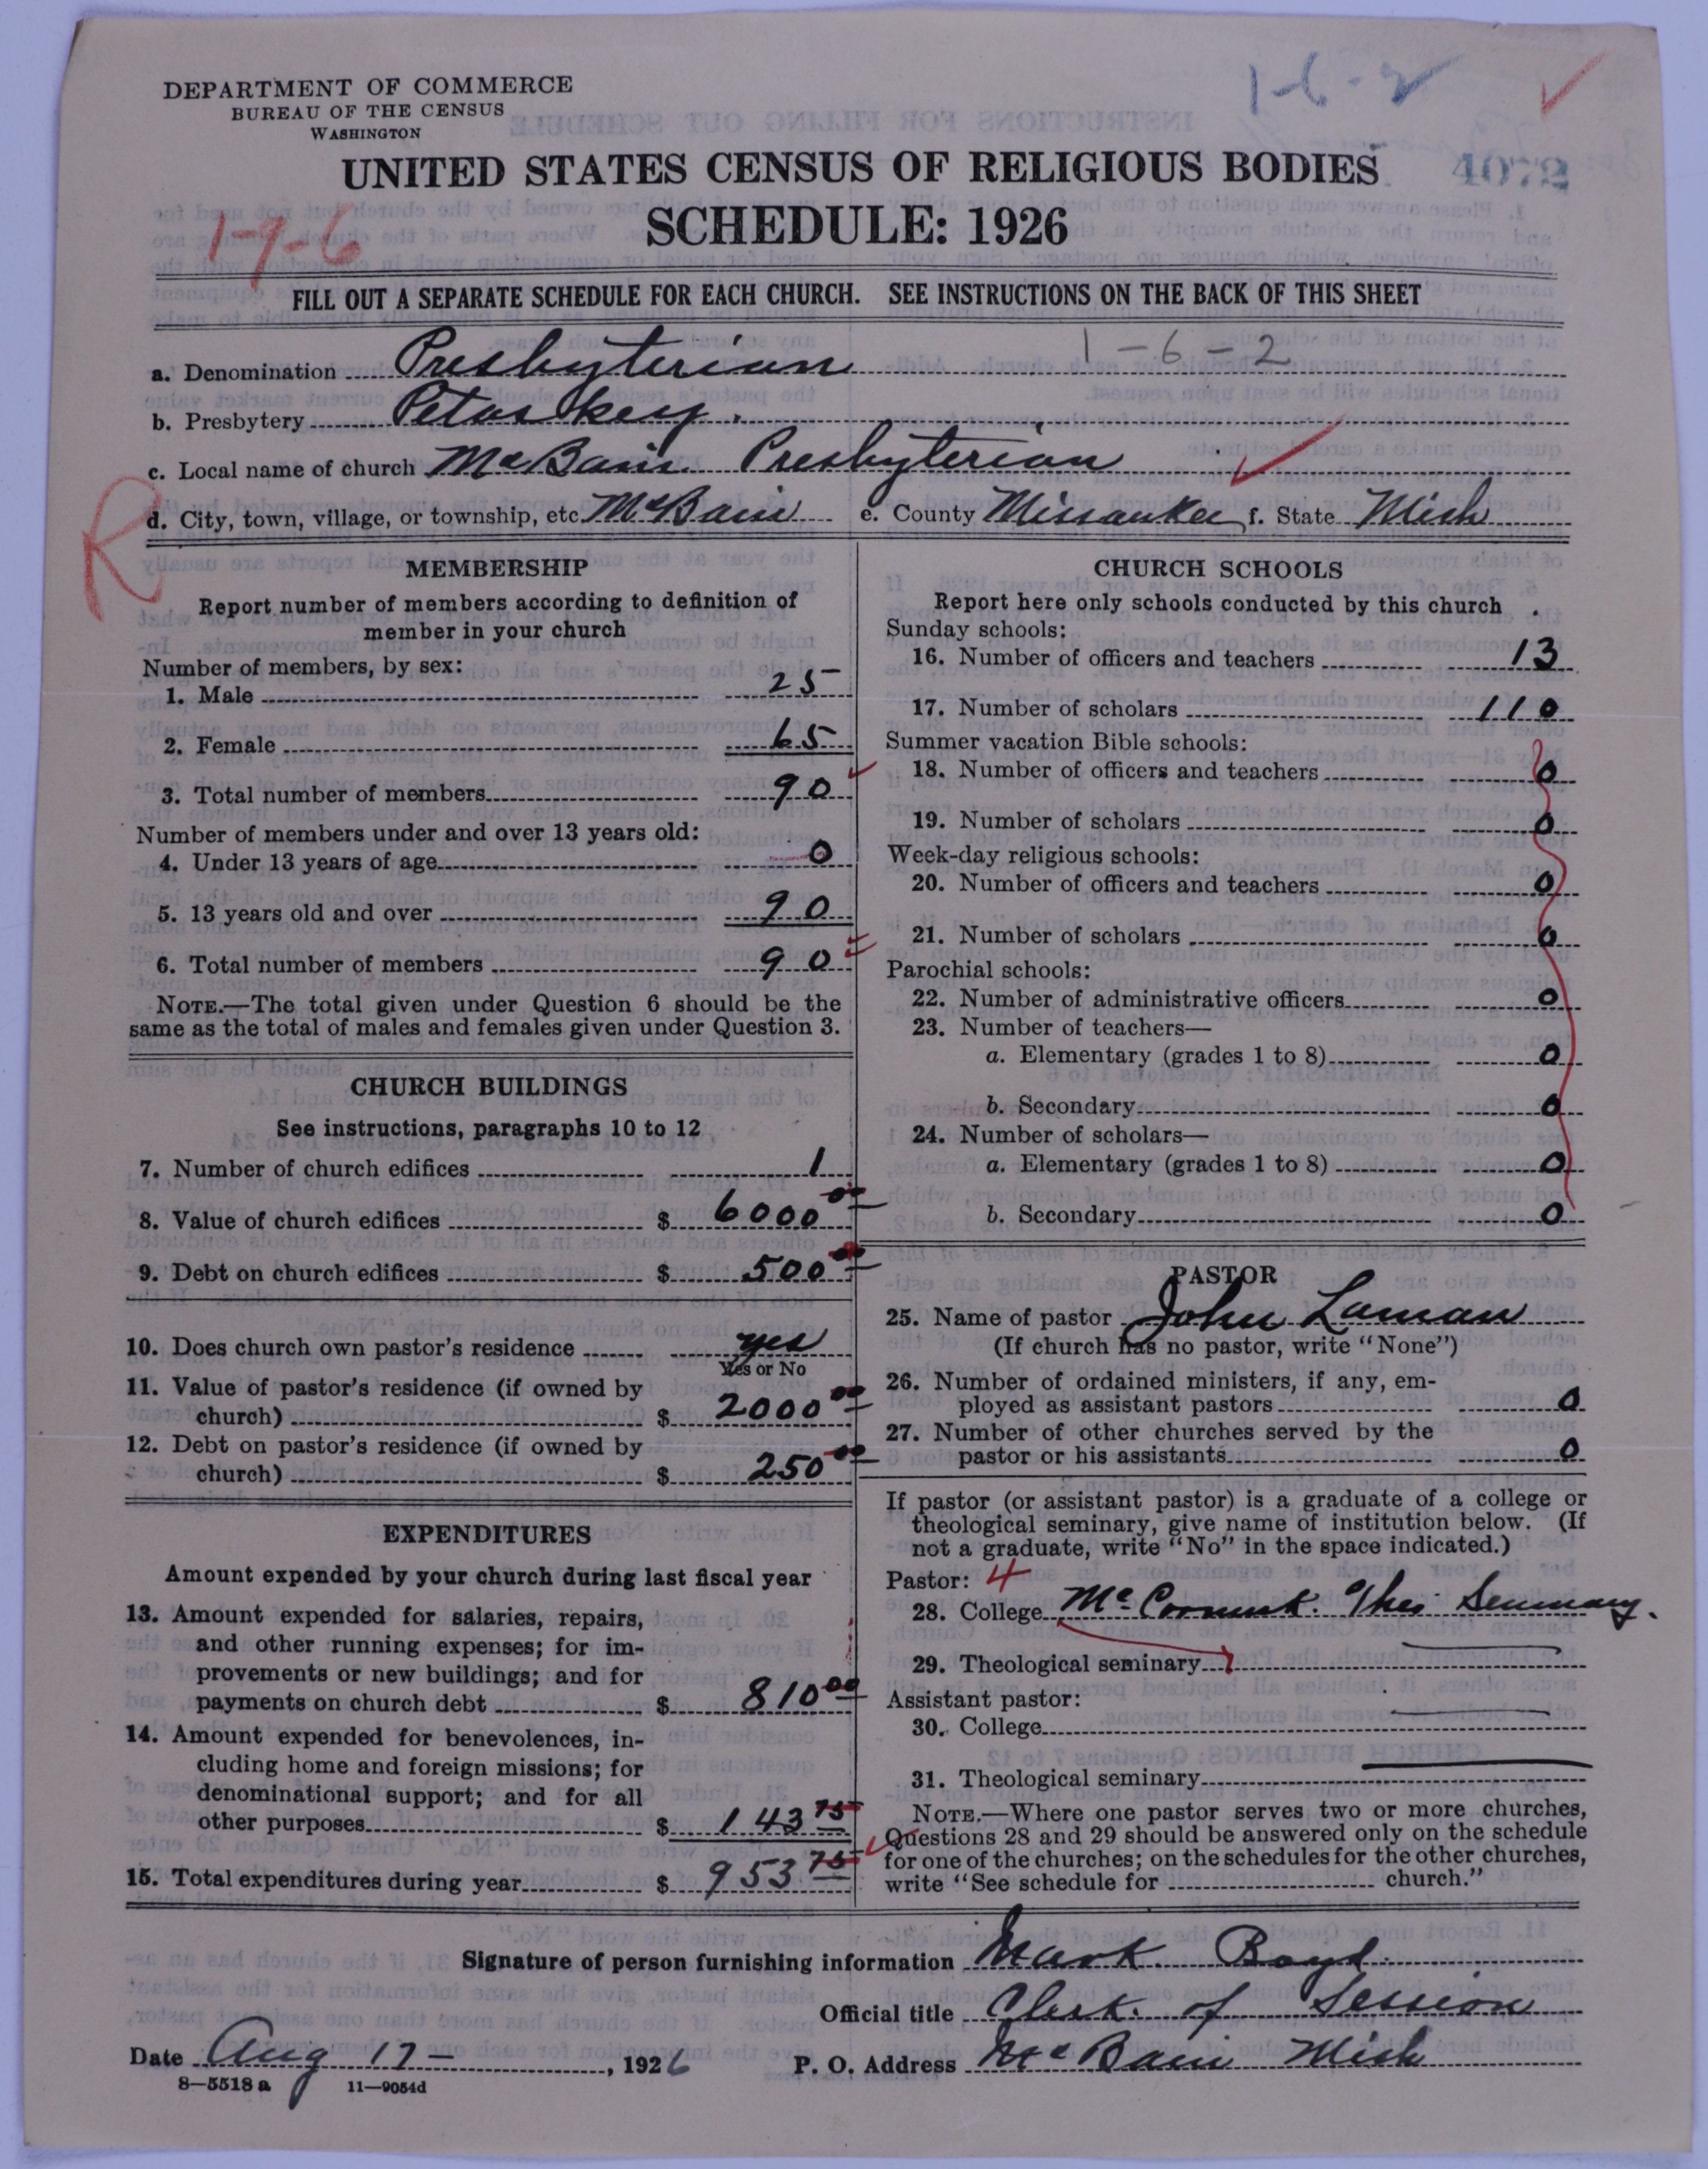 DEPARTMENT OF COMMERCE
BUREAU OF THE CENSUS
WASHINGTON
1-6-2
4072
UNITED STATES CENSUS OF RELIGIOUS BODIES
SCHEDULE: 1926
1-9-6
FILL OUT A SEPARATE SCHEDULE FOR EACH CHURCH. SEE INSTRUCTIONS ON THE BACK OF THIS SHEET
1-6-2
a. Denomination Presbyterian
b. Presbytery Petoskey.
c. Local name of church McBain Presbyterian
R
d. City, town, village, or township, etc McBain e. County Missaukee f. State Mich
MEMBERSHIP
Report number of members according to definition of
member in your church
Number of members, by sex:
1. Male 25
2. Female 65
3. Total number of members 90
Number of members under and over 13 years old:
4. Under 13 years of age 0
5. 13 years old and over 90
6. Total number of members 90
NOTE.—The total given under Question 6 should be the
same as the total of males and females given under Question 3.
CHURCH BUILDINGS
See instructions, paragraphs 10 to 12
7. Number of church edifices 1
8. Value of church edifices $ 6000 00
9. Debt on church edifices $ 500 00
10. Does church own pastor's residence yes
Yes or No
11. Value of pastor's residence (if owned by
church) $ 2000 00
12. Debt on pastor's residence (if owned by
church) $ 250 00
EXPENDITURES
Amount expended by your church during last fiscal year
13. Amount expended for salaries, repairs,
and other running expenses; for im-
provements or new buildings; and for
payments on church debt $ 810 00
14. Amount expended for benevolences, in-
cluding home and foreign missions; for
denominational support; and for all
other purposes $ 143 75
15. Total expenditures during year $ 953 75
CHURCH SCHOOLS
Report here only schools conducted by this church
Sunday schools:
16. Number of officers and teachers 13
17. Number of scholars 110
Summer vacation Bible schools:
18. Number of officers and teachers 0
19. Number of scholars 0
Week-day religious schools:
20. Number of officers and teachers 0
21. Number of scholars 0
Parochial schools:
22. Number of administrative officers 0
23. Number of teachers—
a. Elementary (grades 1 to 8) 0
b. Secondary 0
24. Number of scholars—
a. Elementary (grades 1 to 8) 0
b. Secondary 0
PASTOR
25. Name of pastor John Laman
(If church has no pastor, write "None")
26. Number of ordained ministers, if any, em-
ployed as assistant pastors 0
27. Number of other churches served by the
pastor or his assistants 0
If pastor (or assistant pastor) is a graduate of a college or
theological seminary, give name of institution below. (If
not a graduate, write "No" in the space indicated.)
Pastor: 4
28. College Mc Cormick. Theo Seminary.
29. Theological seminary
Assistant pastor:
30. College
31. Theological seminary
NOTE.—Where one pastor serves two or more churches,
Questions 28 and 29 should be answered only on the schedule
for one of the churches; on the schedules for the other churches,
write "See schedule for church."
Signature of person furnishing information Mark Boyd
Official title Clerk of Session
Date Aug 17, 1926 P. O. Address McBain Mich
8—5518 a 11—9054d